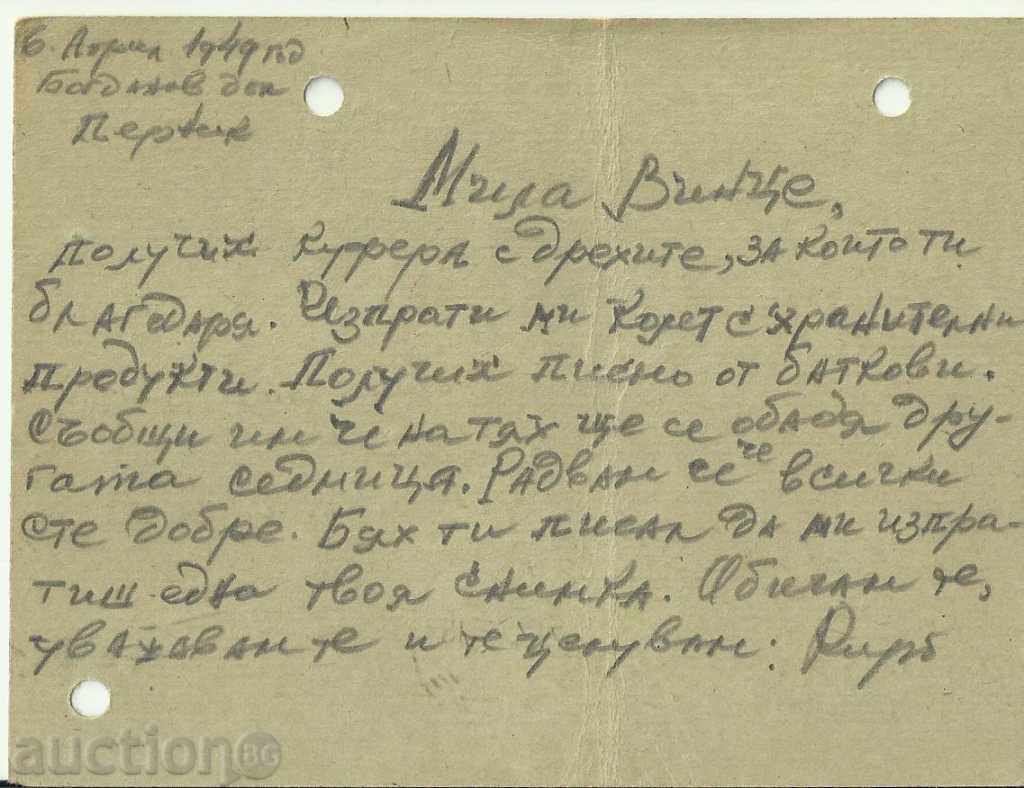 6. Април 1949 год
Богданов дол
Перник
Мила Винче,
получих куфера с дрехите, за които ти
благодаря. Изпрати ми колет с хранителни
продукти. Получих писмо от баткови.
Съобщи им че на тях ще се обадя дру-
гата седмица. Радвам се че всички
сте добре. Бях ти писал да ми изпра-
тиш една твоя снимка. Обичам те,
уважавам те и те целувам:
auction BG